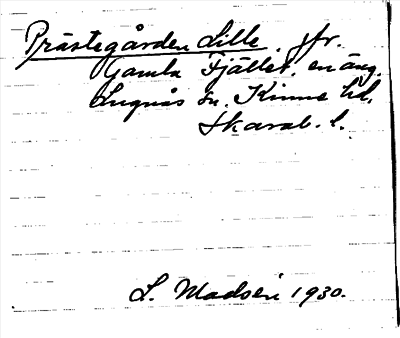 Prästegården Lille. jfr.
Gamla Fjället, en äng.
Lugnås sn. Kinne hd.
Skarab. l.
L. Madsén 1930.